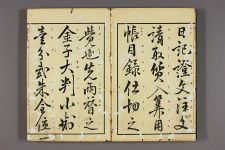 日記證文注文
請取質入算用
帳目録仕切之
覺也先両替之
金子大判小判
壹分貳朱金位